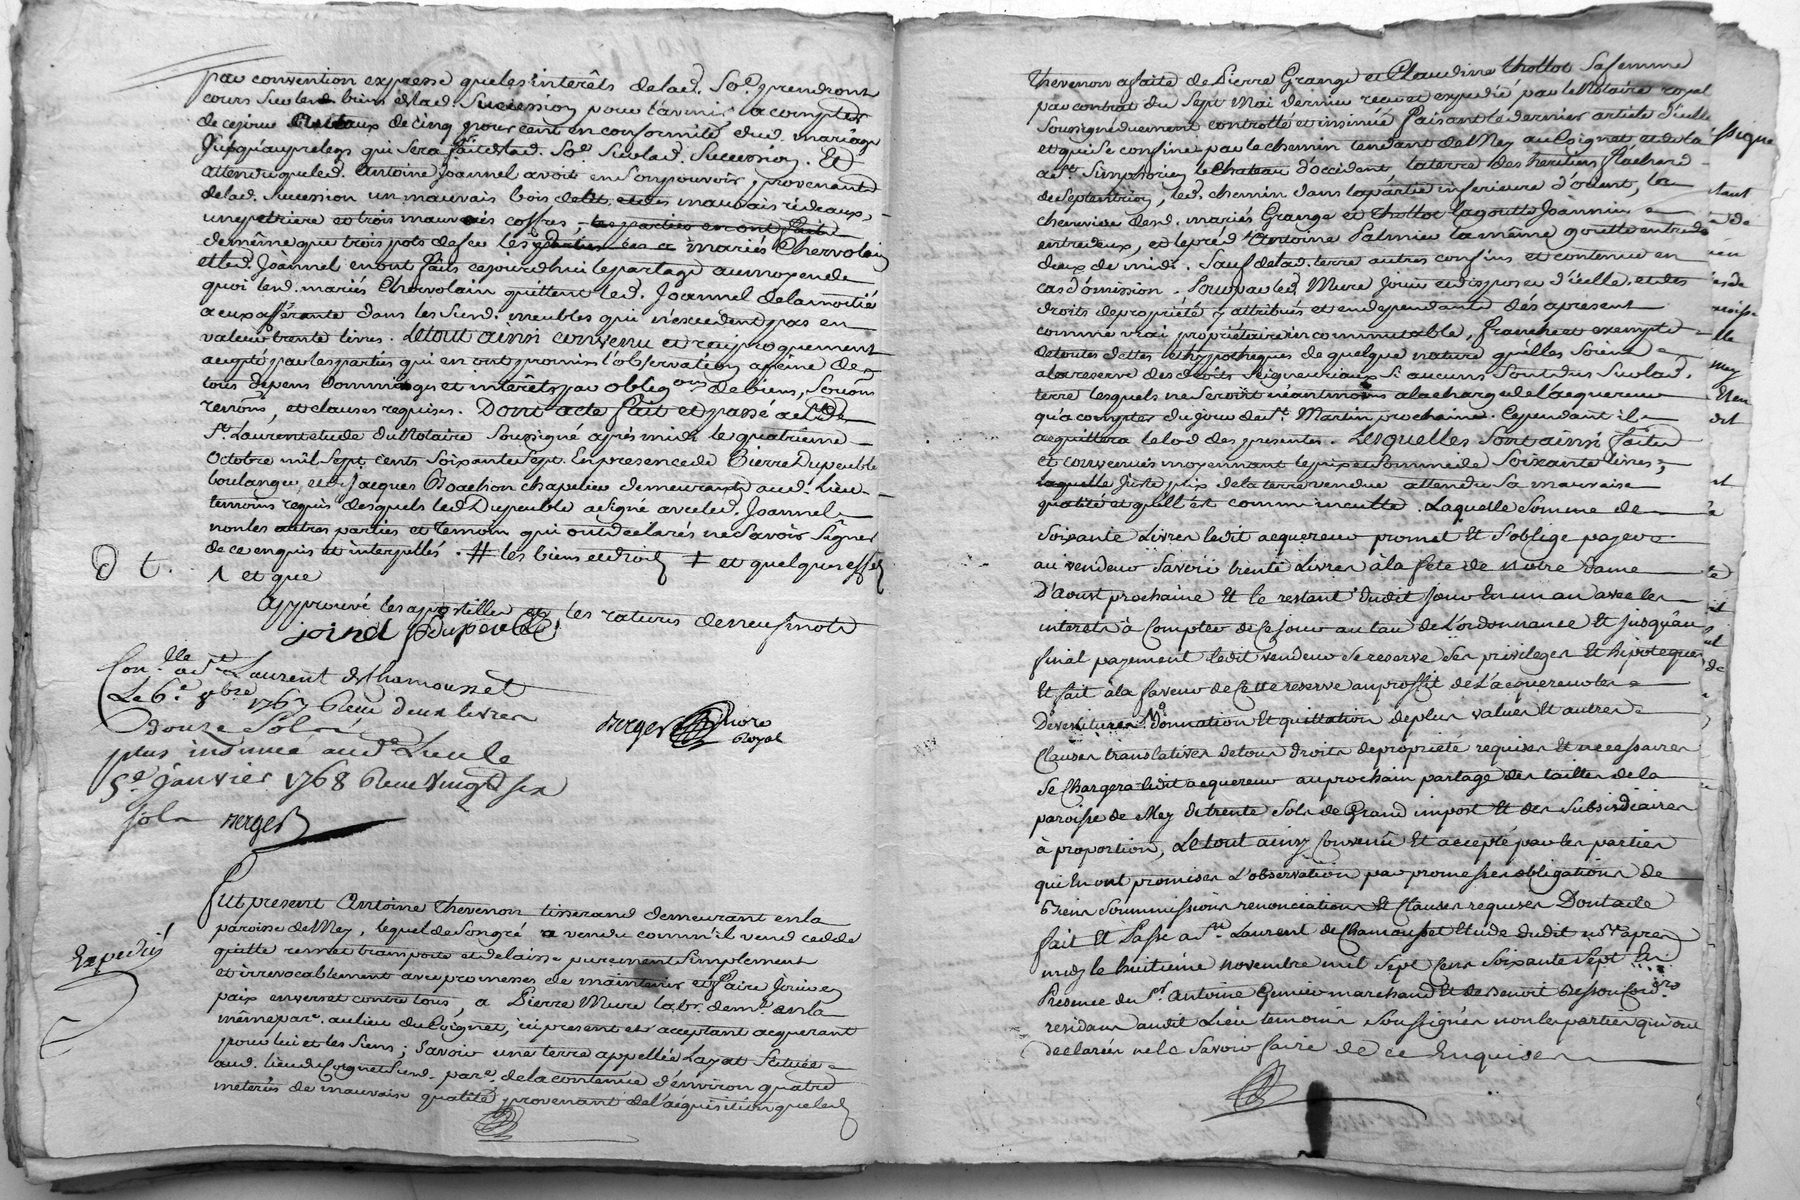 par convention expresse que les interêts de lad. So.e prendront
cours sur lesd. biens de lad. Succession pour l'avenir, a compter
de cejour au taux de cinq pour cent en conformité dud. mariage
Jusqu'au prelegs qui sera fait de lad. So.e sur lad. Succession. Et
attendu que led. Antoine Joannel avoit en son pouvoir, provenants
de lad. Sucession un mauvais bois de lit, et des mauvais rideaux,
une petriere et trois mauvais coffres, les parties en ont fait
de même que trois pots de feu les mariés Chervolain
et led. Joannel en ont fait cejourd'hui le partage au moyen de
quoi lesd. mariés Chervolain quittent led. Joannel de la moitié
a eux afférante dans les susd. meubles qui n'excedent pas en
valeur trente livres. Le tout ainsi convenu et reciproquement
accepté par les parties qui en ont promis l'observation a peine de
tous depens dommages et interêts par oblig.ons de biens, Soum.
renon.s, et clauses requises. Dont acte fait et passé aud.
St. Laurent etude du Notaire Soussigné après midi le quatrieme
Octobre mil Sept cents Soixante Sept. En presence de Pierre Dupeuble
boulanger, et de Jacques Boachon chapelier demeurants aud. Lieu
temoins requis desquels led. Dupeuble a signé avec led. Joannel
non les autres parties et temoin qui ont declarés ne Savoir Signer
de ce enquis et interpellés. # les biens et droits + et quelques effets
Λ et que
approuvé les apostilles et les ratures de neuf mots
joanel Dupeuble
Con.lle a St Laurent de Chamousset
Le 6.e 8bre 1767 Reçu deux livres
douze Sols
plus insinué aud. Lieu le
5.e janvier 1768 Reçu vingt six
sols Berger
Berger nore
Royal
Expedié
Fut present Antoine Thevenon tisserand demeurant en la
paroisse de Mey, lequel de Son gré a vendu comm'il vend cedde
quitte remet transporte et delaisse purement Simplement
et irrevocablement avec promesses de maintenir et faire Jouir en
paix envers et contre tous, a Pierre Mure lab.r dem.t en la
même par.e au lieu du Coignet, ici present et acceptant acquerant
pour lui et les Siens; Savoir une terre appellée Layat Située
aud. lieu du Coignet Susd. par.e de la contenue d'environ quatre
meterés de mauvaise qualité, provenant de l'acquisition que led.
Thevenon a faite de Pierre Grange et Claudine Thollot Sa femme
par contrat du Sept Mai dernier recu et expedié par le Notaire royal
Soussigné duement controllé et insinué faisant le dernier article d'icelle
et qui Se confine par le chemin tendant de Mey au Coignet et de la
a St. Simphorien le Chateau d'occident, la terre des heritiers Flachard
de Septentrion, led. chemin dans la partie inferieure d'orient, la
cheneviere desd. mariés Grange et Thollot la goutte Joannin
entredeux, et le pré d'Antoine Palmier la même goutte entre
deux de midi. Sauf de lad. terre autres confins et contenue en
cas d'omission. Pour par led. Mure Jouir et disposer d'icelle, et des
droits de propriété y attribués et en dependants dès apresent
comme vrai proprietaire incommutable, franche et exempte
de toutes dettes et hypotheques de quelque nature qu'elles Soient
a la reserve des droits Seigneuriaux Si aucuns Sont dus Sur lad.
terre lesquels ne Seront neantmoins a la charge de l'acquereur
qu'a compter du jour de St. Martin prochaine. Cependant il
acquittera le lod des presentes. Lesquelles Sont ainsi faites
et convenues moyennant le prix et Somme de Soixante livres,
laquelle Juste prix de la terre vendue attendu Sa mauvaise
qualité et qu'ell'est comm'inculte. Laquelle Somme de
Soixante Livres ledit acquereur promet Et S'oblige payer
au vendeur Savoir trente Livres à la fete de Notre Dame
D'aoust prochaine Et le restant dudit jour En un an avec les
interets à Compter de ce jour au tau de L'ordonnance Et jusqu'au
final payement ledit vendeur Se reserve Ses privileges Et hipoteques
Et fait à la faveur de Cette reserve au proffit de L'acquereur les
Devestitures Donnation Et quittation de plus values Et autres
Clauses translatives de tous droits de propriété requises Et necessaires
Se Chargera ledit acquereur au prochain partage des tailles de la
paroisse de Mey de trente Sols de Grand impost Et des Subsidiaires
à proportion, Le tout ainsy Convenû Et accepté par les parties
qui En ont promises L'observation par promesses obligations de
biens Soummissions renonciations Et Clauses requises Dont acte
fait Et Passé a St. Laurent de Chamousset Etude dudit no.re apres
midy le huitiéme novembre mil Sept Cens Soixante Sept En
Presence du Sr. Antoine Genier marchand Et de Benoit Besson Cord.er
residans audit Lieu temoins Soussignés non les parties qui ont
declarées ne le Savoir faire de ce Enquises